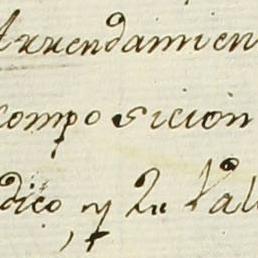 Arrendamien
composicion
dico, y Dn Val